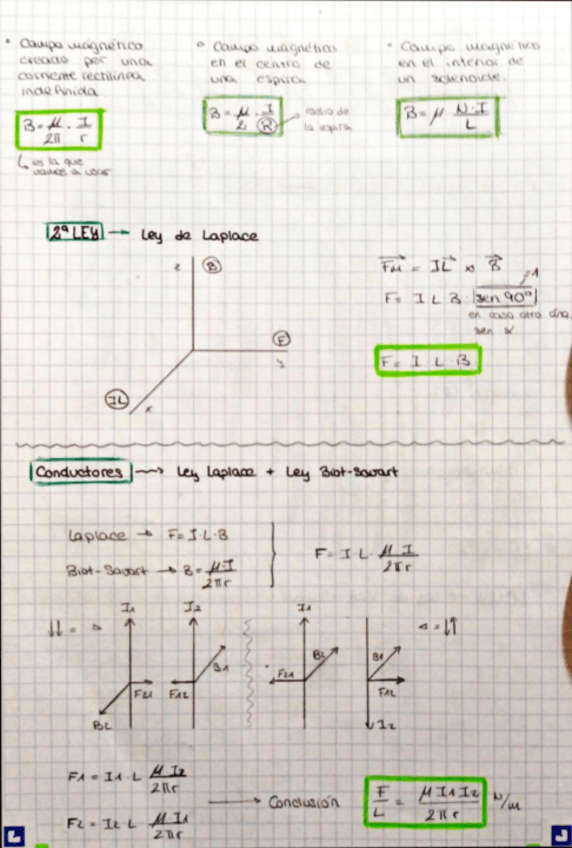 • Campo magnético
creado por una
corriente rectilínea
indefinida
B = μ/2π · I/r
↳ es la que
vamos a usar
• Campo magnético
en el centro de
una espira
B = μ/2 · I/R → radio de
la espira
• Campo magnético
en el interior de
un solenoide.
B = μ N·I/L
2ª LEY → Ley de Laplace
z B
F
y
IL x
Fm = IL x B
1
F = I L · B · sen 90º
en caso otro áng
sen α
F = I L · B
Conductores → Ley Laplace + Ley Biot-Savart
Laplace → F = I·L·B
Biot-Savart → B = μ·I/2πr
F = I · L · μ I/2πr
I1 I2 I1
↓↓ = ▹ ◃ = ↓↑
B1 B2 B1
F21 F12 F21 F12
B2 I2
F1 = I1 · L μ I2/2πr
F2 = I2 L μ I1/2πr
→ Conclusión
F/L = μ I1 I2/2πr N/m